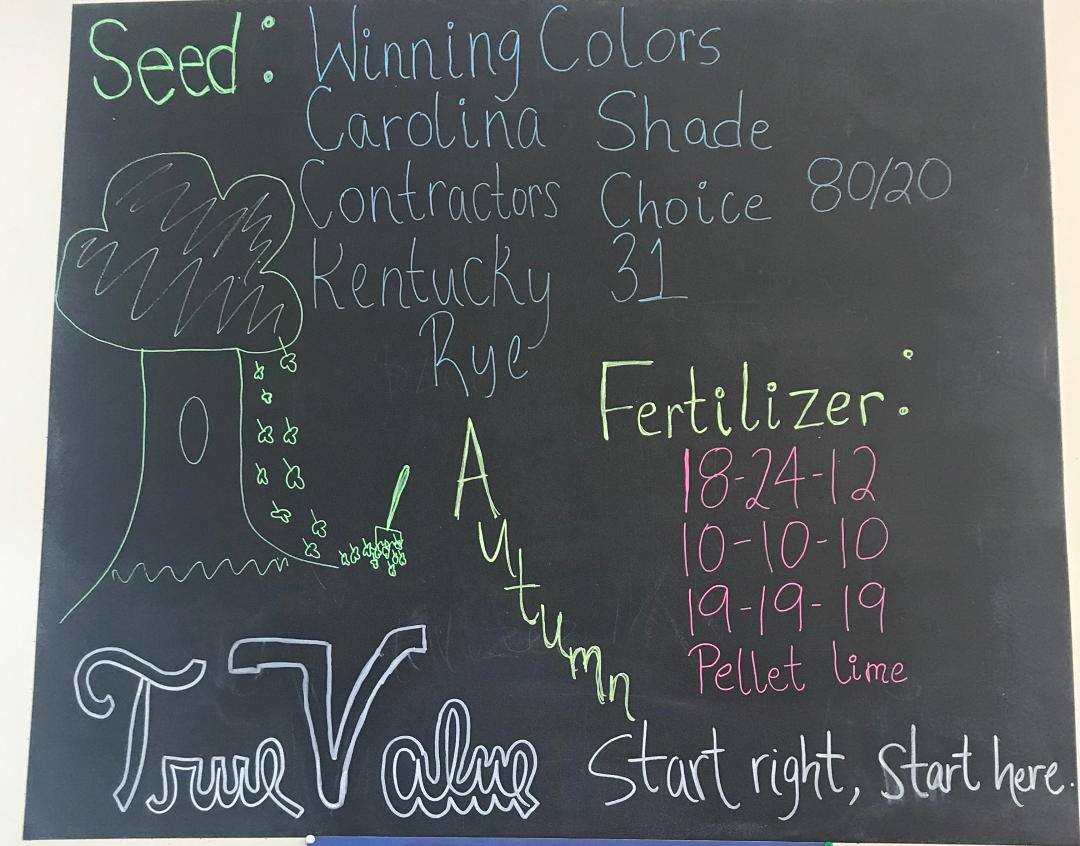 Seed: Winning Colors
Carolina Shade
Contractors Choice 80/20
Kentucky 31
Rye
Fertilizer:
18-24-12
10-10-10
19-19-19
Pellet lime
Autumn
True Value
Start right, Start here.